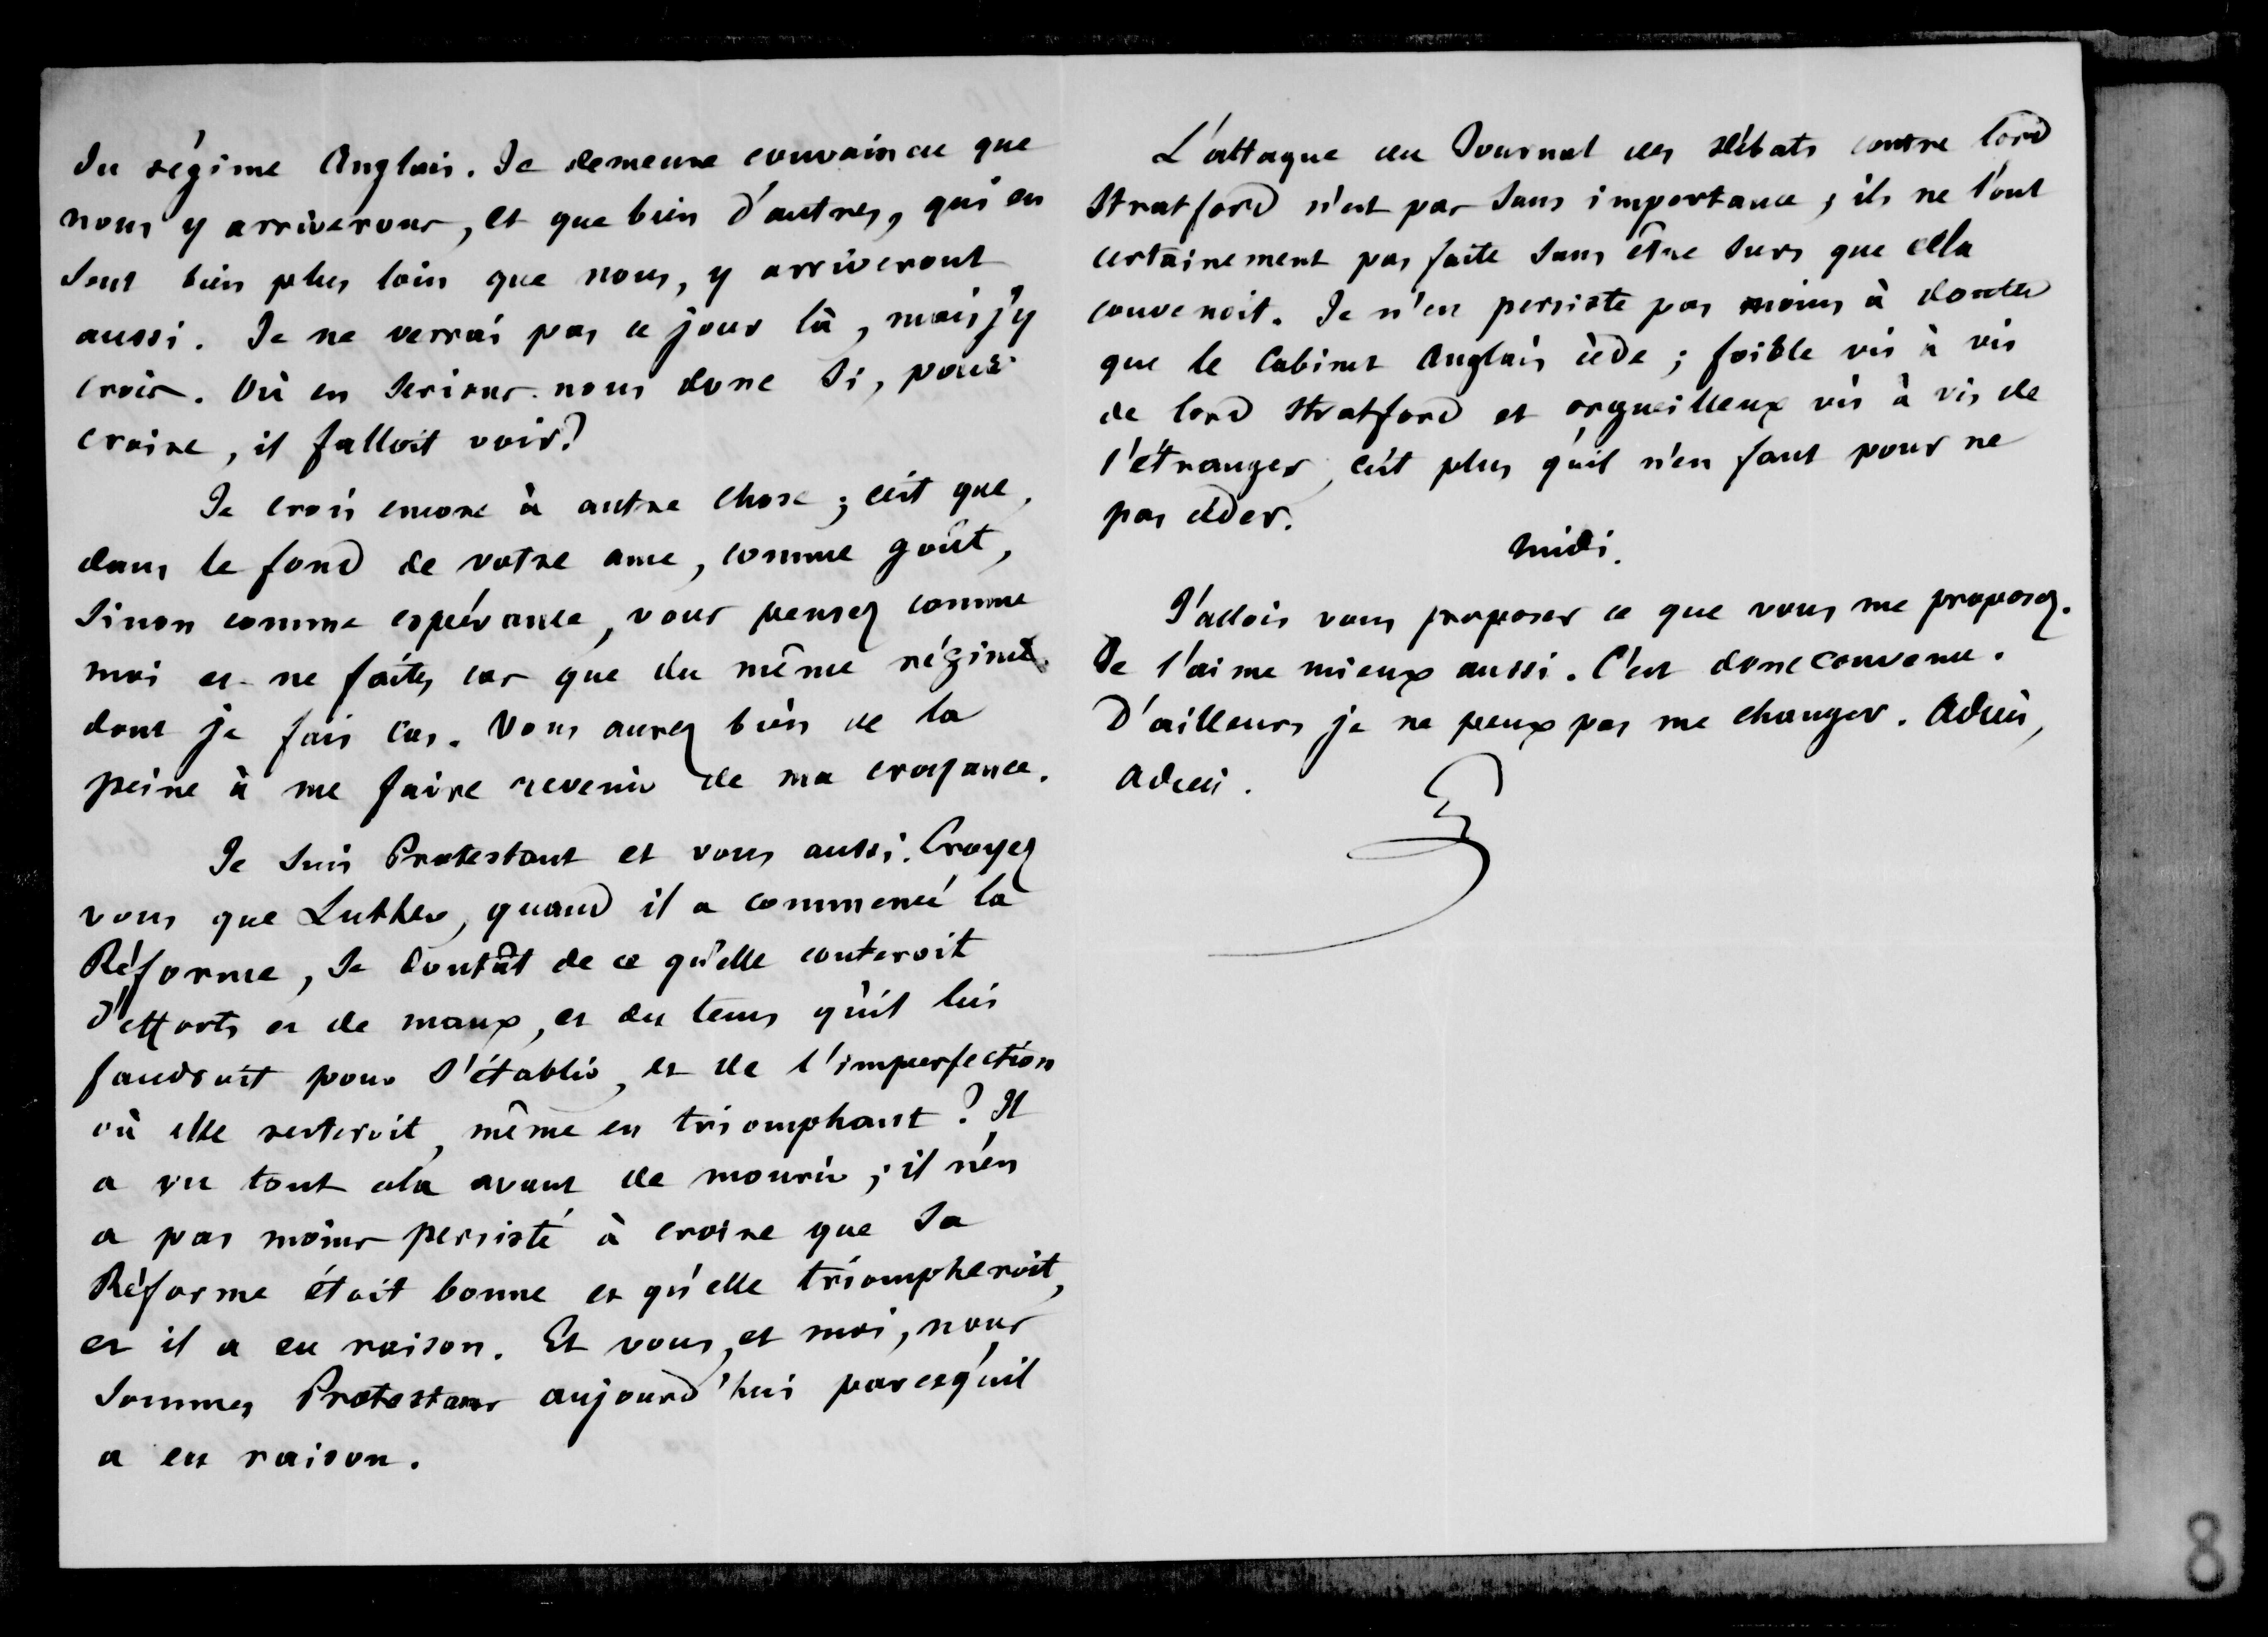 du régime Anglais. Je demeure convaincu que
nous y arriverons, et que bien d'autres, qui en
sont bien plus loin que nous, y arriveront
aussi. Je ne verrai pas ce jour là, mais j'y
crois. Où en serions-nous donc si, pour
croire, il falloit voir?
Je crois encore à autre chose ; c'est que,
dans le fond de votre ame, comme goût,
sinon comme espérance, vous pensez comme
moi et ne faites cas que du même régime
dont je fais cas. Vous aurez bien de la
peine à me faire revenir de ma croyance.
Je suis Protestant et vous aussi. Croyez
vous que Luther, quand il a commencé la
Réforme, se doutât de ce qu'elle couteroit
d'efforts et de maux, et du tems qu'il lui
faudroit pour s'établir, et de l'imperfection
où elle resteroit, même en triomphant ? Il
a vu tout cela avant de mourir ; il n'en
a pas moins persisté à croire que sa
Réforme étoit bonne et qu'elle triompheroit,
et il a eu raison. Et vous, et moi, nous
sommes Protestans aujourd'hui parcequ'il
a eu raison.
L'attaque du Journal des Débats contre lord
Stratford n'est pas sans importance ; ils ne l'ont
certainement pas faite sans être surs que cela
convenoit. Je n'en persiste pas moins à douter
que le Cabinet Anglais cède ; foible vis à vis
de lord Stratford et orgueilleux vis à vis de
l'étranger, c'est plus qu'il n'en faut pour ne
pas céder.
Midi.
J'allois vous proposer ce que vous me proposez.
Je l'aime mieux aussi. C'est donc convenu.
D'ailleurs je ne peux pas me changer. Adieu,
Adieu.
8